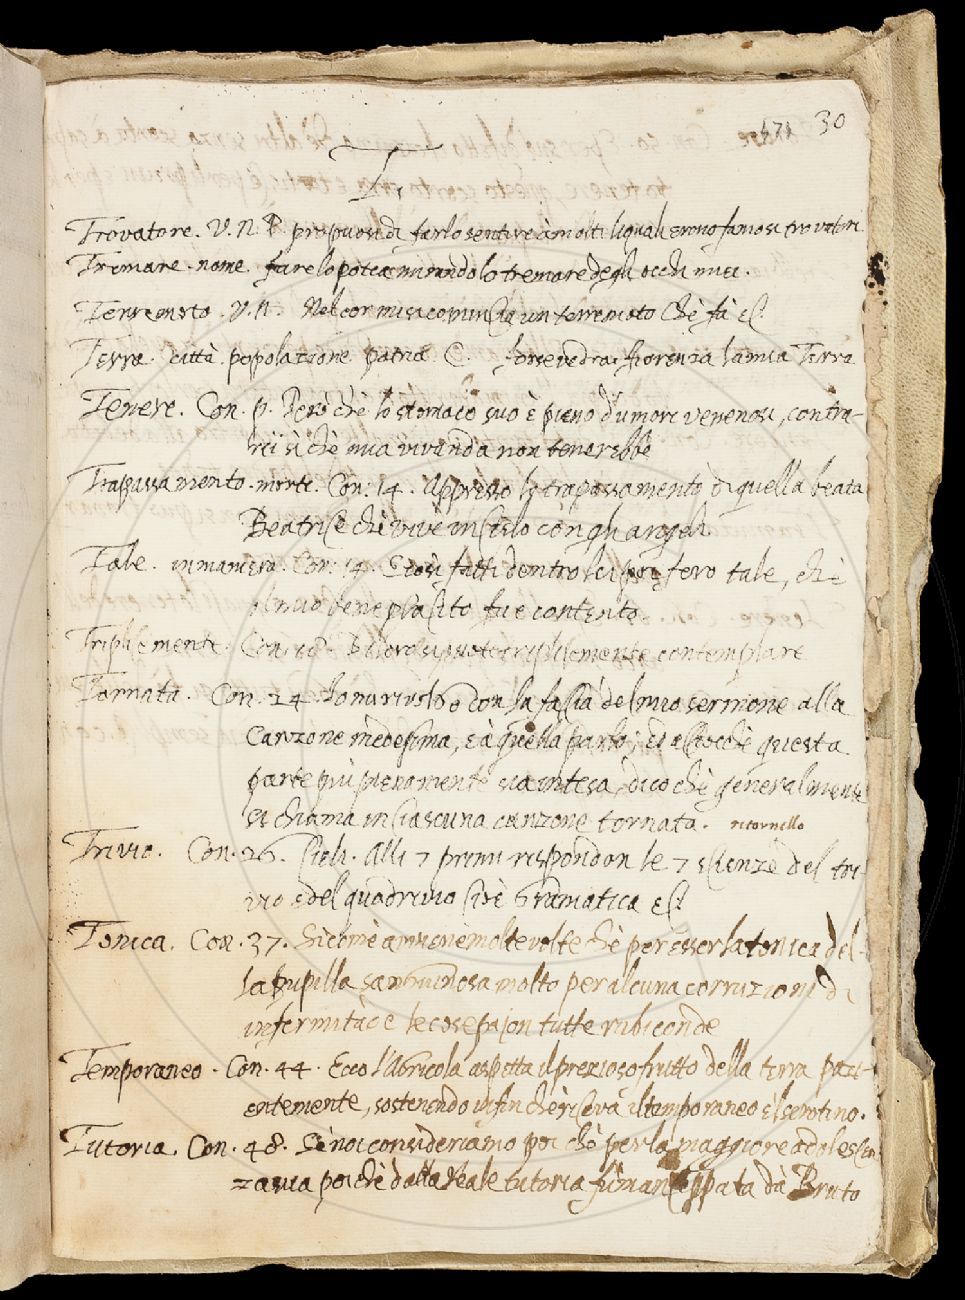 30
T.
Trovatore. V. N. P. propuosi di farlo sentire à molti li quali erono famosi trovatori
Tremare. nome. fare lo potea mirandolo tremare degli occhi miei.
Terremoto. V. N. Nel cor mi si comincia un terremoto Chè fà
Terra. città. popolazione patria C. forse vedrai fiorenza la mia Terra
Tenere. Con. p. Però chè lo stomaco suo è pieno d'umori venenosi, contra-
rii sì chè mia vivanda non tenerebbe
Trapassamento. morte. Con. 14. Appresso lo trapassamento di quella beata
Beatrice chè vive in Cielo con gli angeli
Tale. in maniera. Con. 14. E così fatti dentro lei poi fero tale, chè
il mio beneplacito fue contento
Triplicemente. Con. 18. di loro si puote triplicemente contemplare
Tornata. Con. 24. Io mi rivolgo con la faccia del mio sermone alla
Canzone medesima, e à quella parlo; ed acciocchè questa
parte più pienamente sia intesa, dico chè generalmente
si chiama in ciascuna canzone tornata. ritornello
Trivio. Con. 26. Cieli. Alli 7 primi rispondon le 7 scienze del tri-
vio e del quadrivio cioè Gramatica
Tonica. Con. 37. Siccomè avviene molte volte chè per esser la tonica del-
la pupilla sanguinosa molto per alcuna corruzioni di
infermitàce le cose pajon tutte rubiconde
Temporaneo. Con. 44. Ecco l'Agricola aspetta il prezioso frutto della terra pazi-
entemente, sostenendo infin chè riceva il temporaneo è'l serotino.
Tutoria. Con. 48. Sè noi consideriamo poi chè per la maggiore adolescen
za sua poichè dalla Reale tutoria fù manceppata dà Bruto